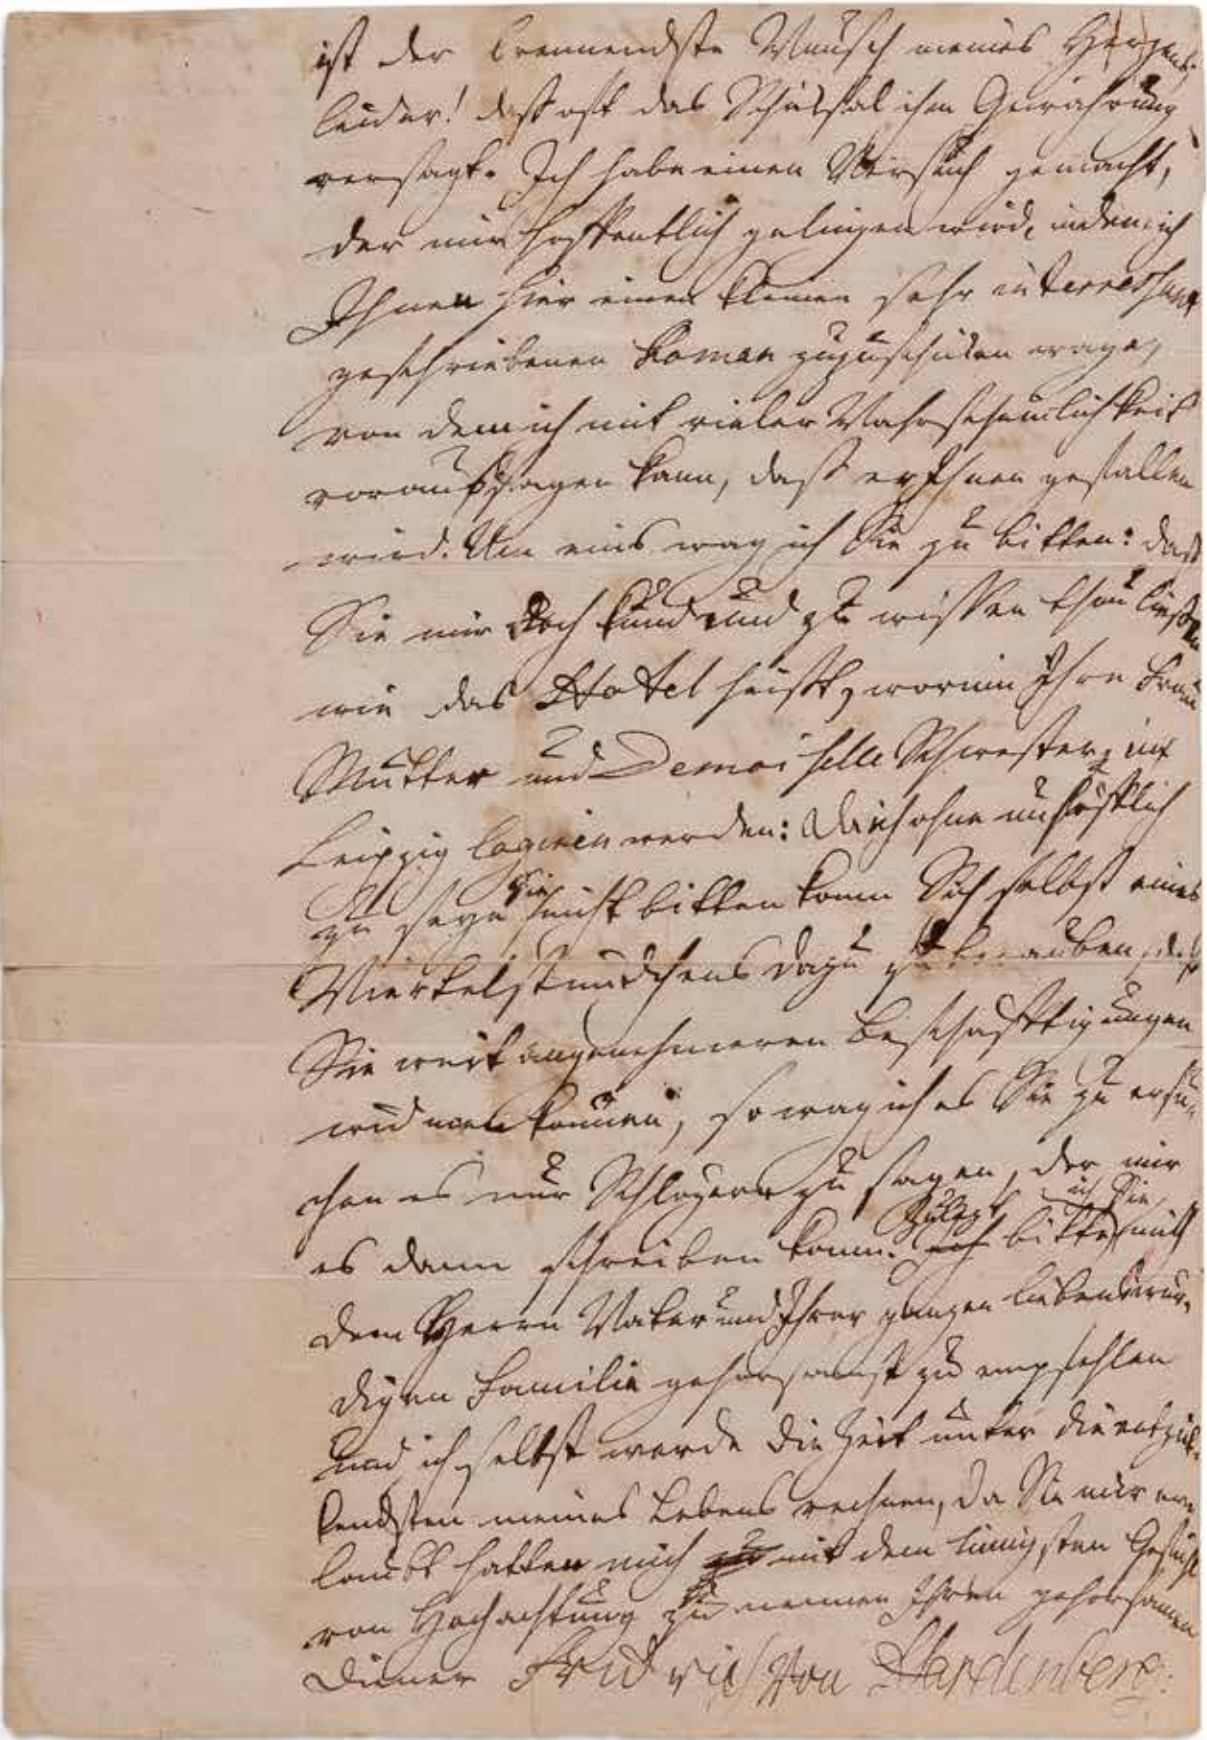 ist der brennendste Wunsch meines Herzens,
leider! daß oft das Schiksal ihm Gewährung
versagt. Ich habe einen Versuch gemacht,
der mir hoffentlich gelingen wird, indem ich
Ihnen hier einen kleinen sehr interressant
geschriebenen Roman zuzuschicken wage,
von dem ich mit vieler Wahrscheinlichkeit
voraussagen kann, daß er Ihnen gefallen
wird. Um eins wag ich Sie zu bitten: daß
Sie mir doch kund und zu wissen thun ließen
wie das Hotel heißt, worinn Ihre Frau
Mutter und Demoiselle Schwester, in
Leipzig logiren werden: Da ich ohne unhöflich
zu seyn Sie nicht bitten kann Sich selbst eines
Viertelstündchens dazu zu berauben, das
Sie weit angenehmeren Beschäfftigungen
widmen können, so wag ich es Sie zu ersu-
chen es nur Schlözern zu sagen, der mir
es dann schreiben kann. Zulezt bitte ich Sie, mich
dem Herrn Vater und Ihrer ganzen liebenswür-
digen Familie gehorsamst zu empfehlen
und ich selbst werde die Zeit unter die entzük-
kendsten meines Lebens rechnen, da Sie mir er-
laubt hatten mich mit dem innigsten Gefühl
von Hochachtung zu nennen Ihren gehorsamen
Diener Friedrich von Hardenberg.